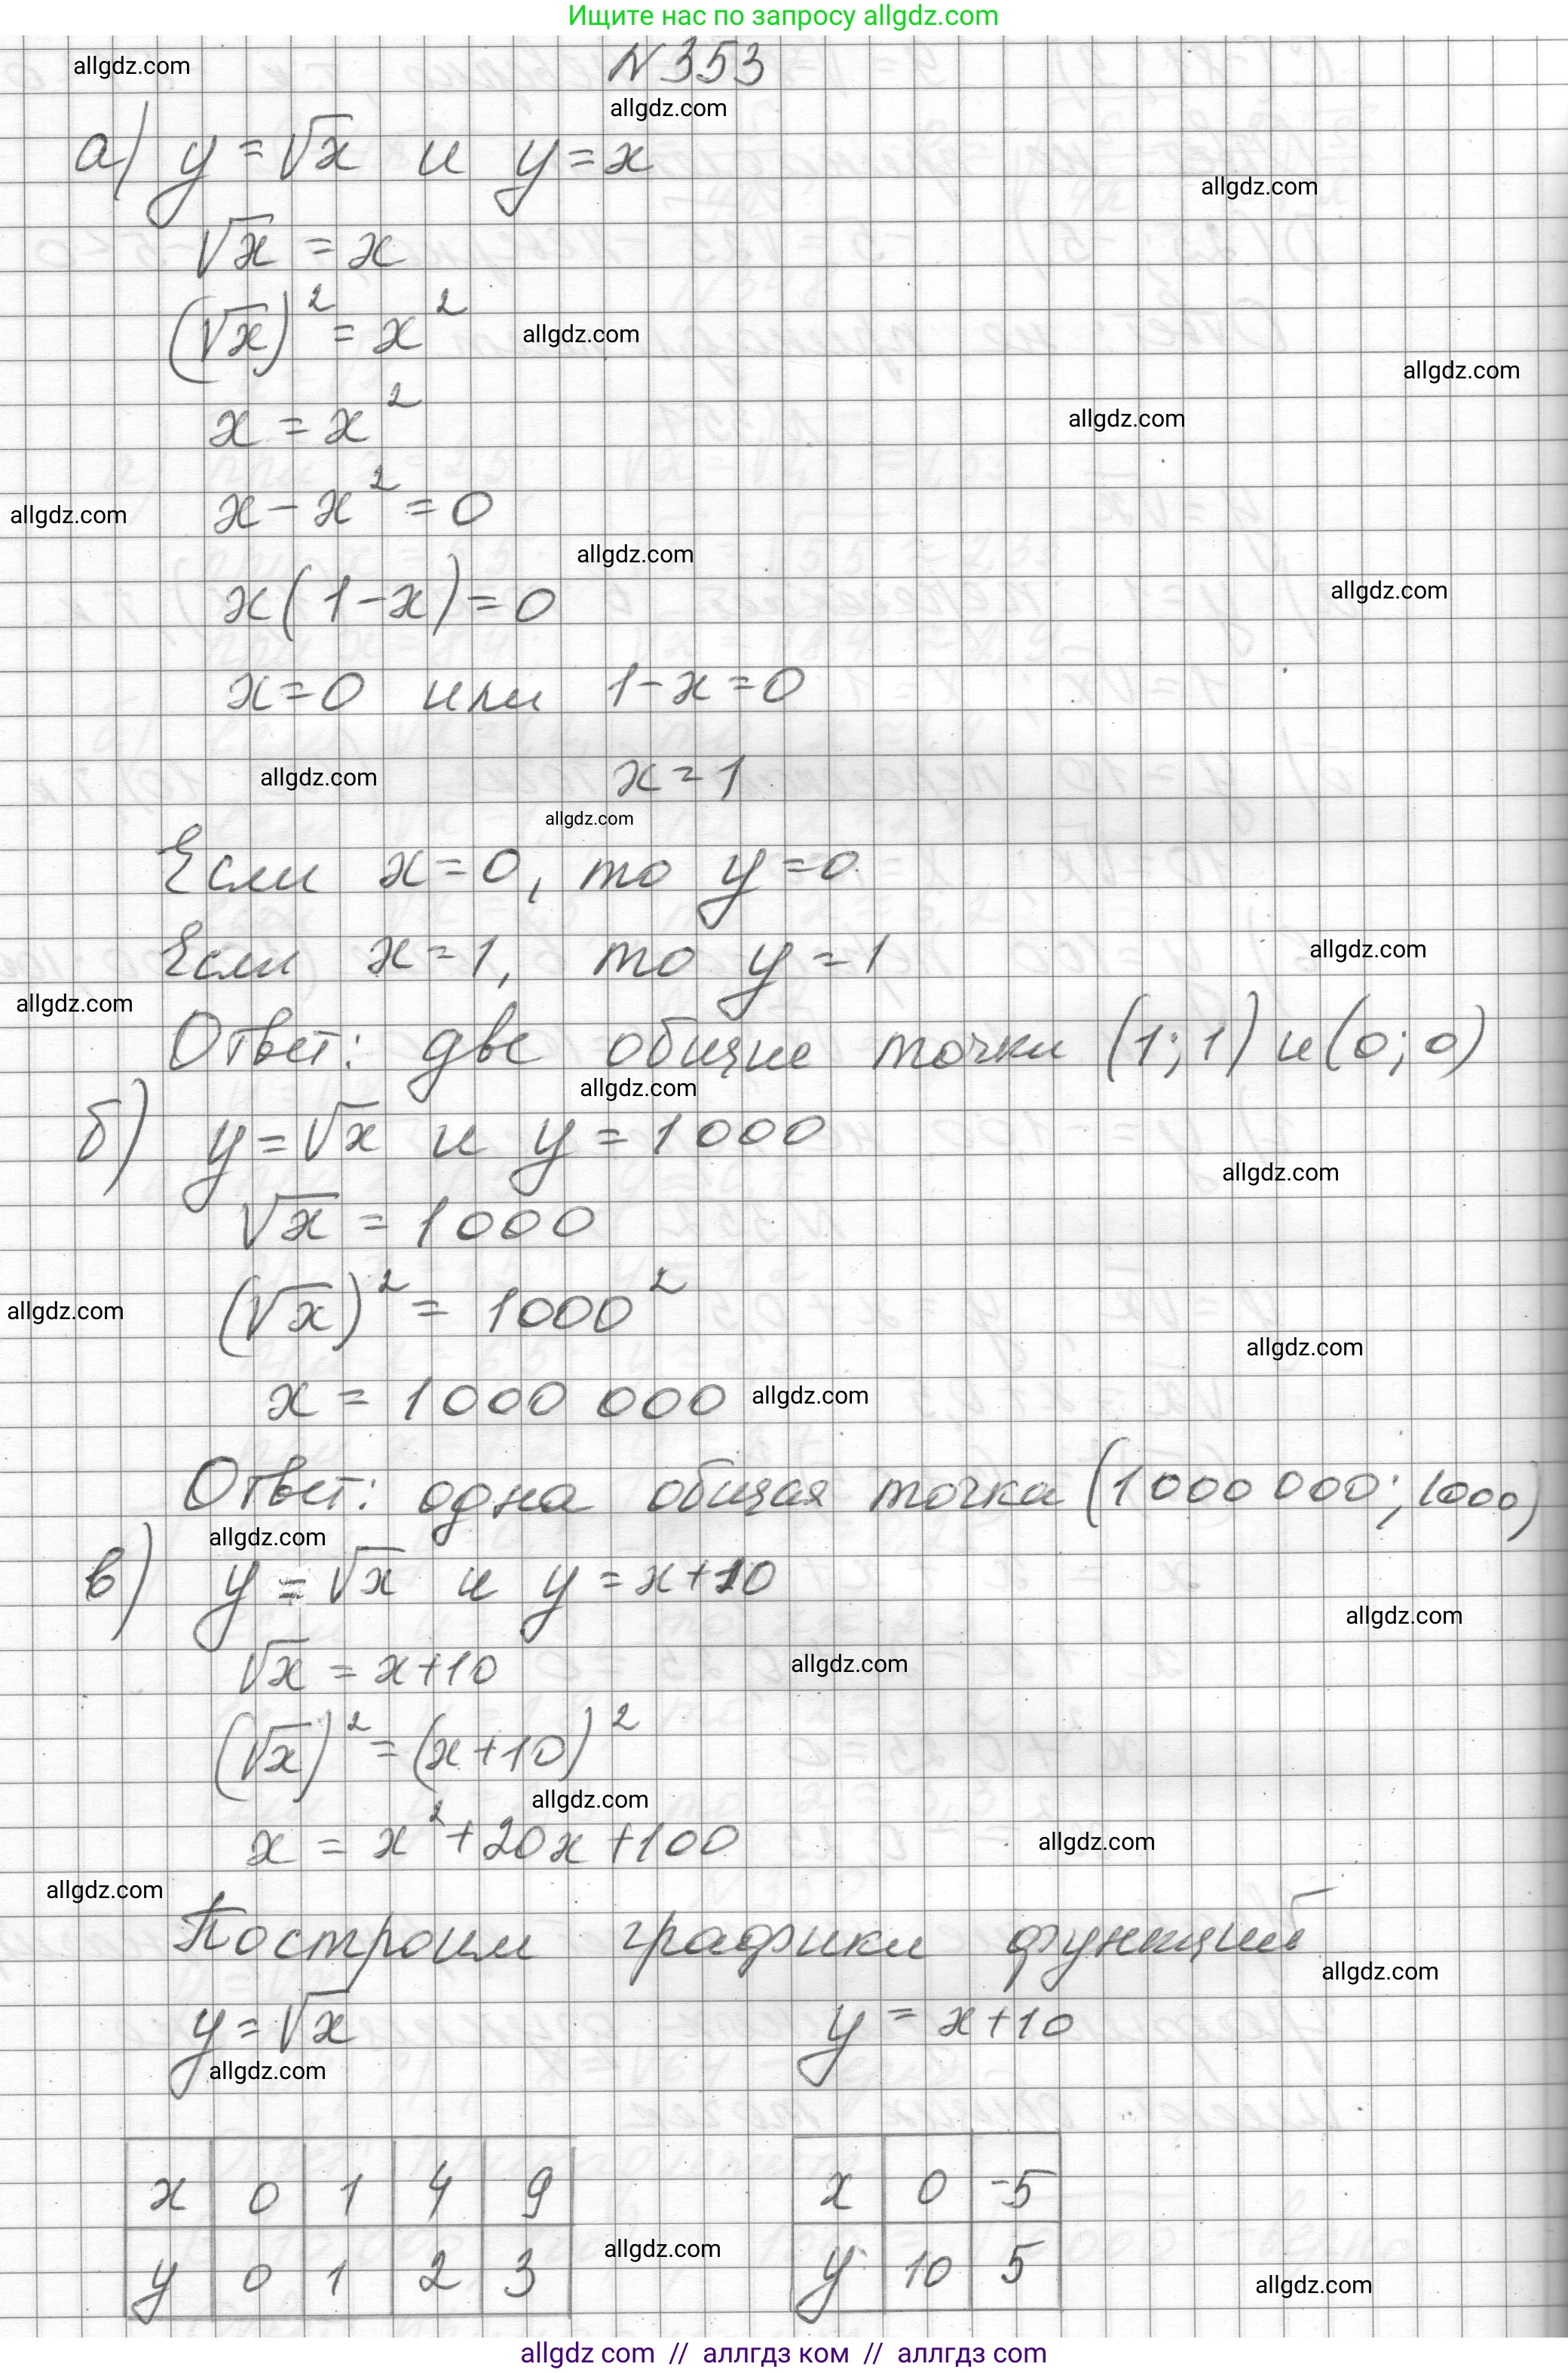 Ищите нас по запросу allgdz.com
N353
allgdz.com
allgdz.com
а) y = √x и y = x
allgdz.com
√x = x
(√x)² = x²
allgdz.com
allgdz.com
x = x²
allgdz.com
x - x² = 0
allgdz.com
allgdz.com
x(1-x) = 0
allgdz.com
x = 0 или 1-x = 0
x = 1
allgdz.com
allgdz.com
Если x = 0, то y = 0
Если x = 1, то y = 1
allgdz.com
allgdz.com
Ответ: две общие точки (1; 1) и (0; 0)
allgdz.com
б) y = √x и y = 1000
allgdz.com
√x = 1000
(√x)² = 1000²
allgdz.com
allgdz.com
x = 1000 000
allgdz.com
Ответ: одна общая точка (1000 000; 1000)
allgdz.com
в) y = √x и y = x+10
allgdz.com
√x = x+10
allgdz.com
(√x)² = (x+10)²
allgdz.com
x = x² + 20x + 100
allgdz.com
allgdz.com
Построим графики функций
allgdz.com
y = √x y = x+10
allgdz.com
x 0 1 4 9 x 0 -5
allgdz.com
y 0 1 2 3 y 10 5
allgdz.com
allgdz com // аллгдз ком // аллгдз com